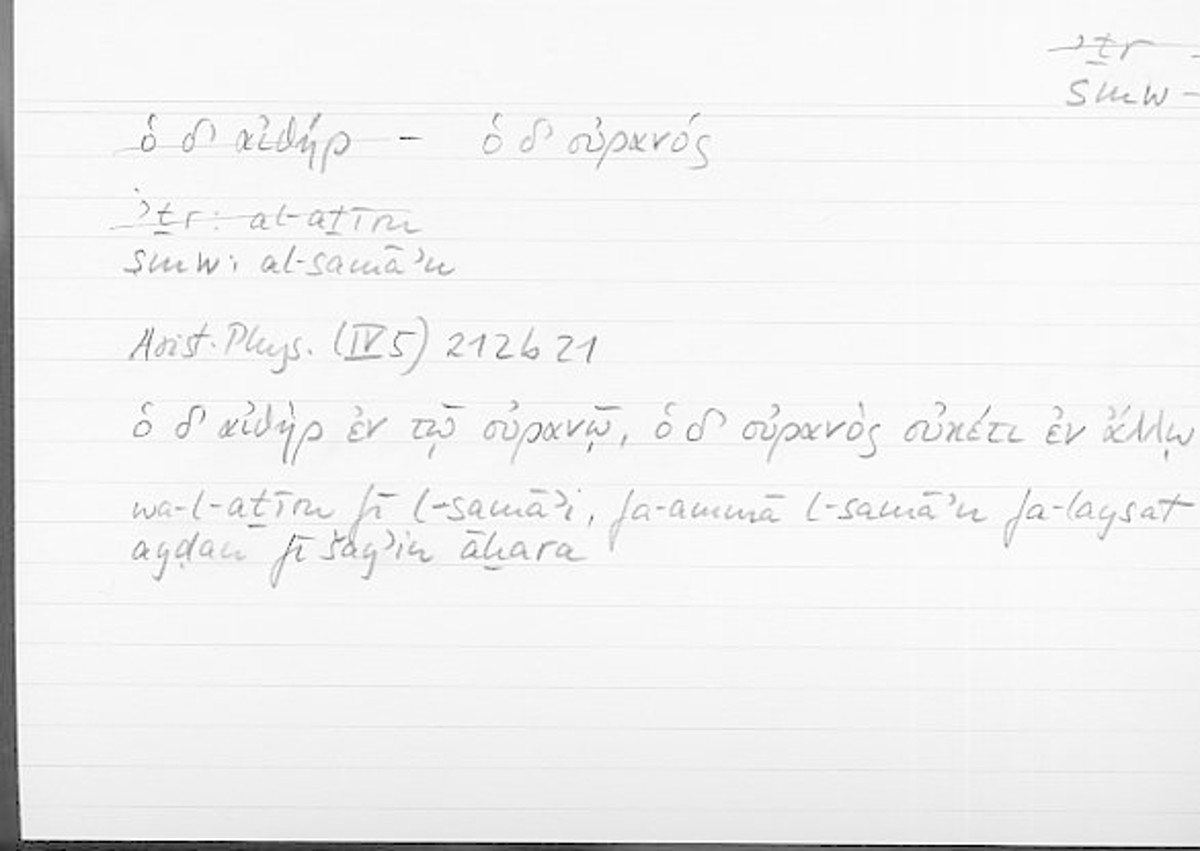 ʾṯr -
smw -
ὁ δ' αἰθήρ - ὁ δ' οὐρανός
ʾṯr: al-aṯīru
smw: al-samāʾu
Arist. Phys. (IV 5) 212b21
ὁ δ' αἰθὴρ ἐν τῷ οὐρανῷ, ὁ δ' οὐρανὸς οὐκέτι ἐν ἄλλῳ
wa-l-aṯīru fī l-samāʾi, fa-ammā l-samāʾu fa-laysat
ayḍan fī šayʾin āḫara